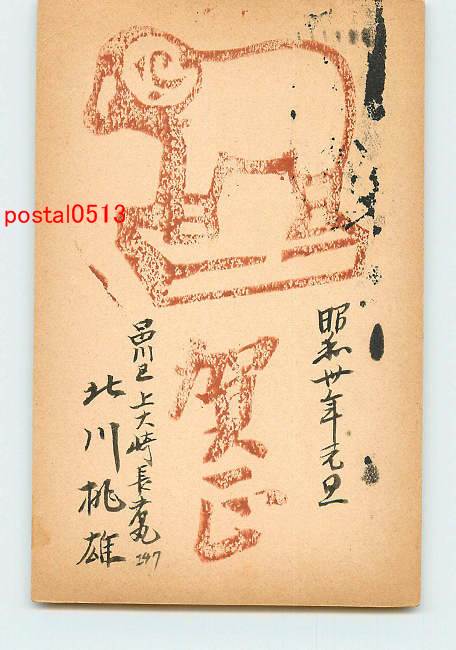 昭和卅年元旦
賀正
品川区上大崎長者丸247
北川桃雄
postal0513